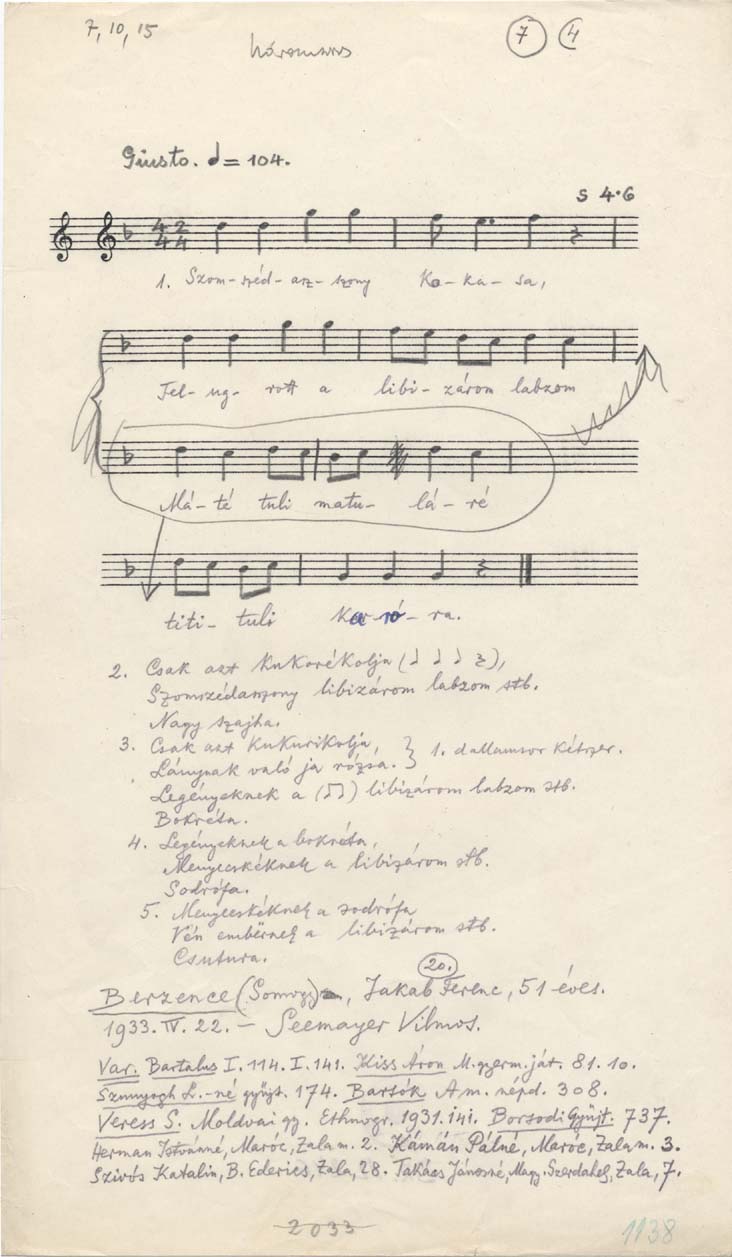 7, 10, 15
7 4
Giusto. = 104.
s 4·6
4 2
4 4
1. Szom- széd- asz- szony Ka- ka- sa,
Fel- ug- rott a libi- zárom labzom
Má- té tuli matu- lá- ré
titi- tuli Ka-ró- ra.
2. Csak azt kukorékolja ( ),
Szomszédasszony libizárom labzom stb.
Nagy szajha.
3. Csak azt kukurikolja, } 1. dallamsor kétszer.
Lánynak való ja rózsa.
Legényeknek a ( ) libizárom labzom stb.
Bokréta.
4. Legényeknek a bokréta,
Menyecskéknek a libizárom stb.
Sodrófa.
5. Menyecskéknek a sodrófa
Vén embërnek a libizárom stb.
Csutura.
20.
Berzence (Somogy), Jakab Ferenc, 51 éves.
1933. IV. 22. – Seemayer Vilmos.
Var. Bartalus I. 114. I. 141. Kiss Áron M. gyerm. ját. 81. 10.
Szunyogh L.-né gyűjt. 174. Bartók A m. népd. 308.
Veress S. Moldvai gy. Ethnogr. 1931. 141. Borsodi Gyűjt. 737.
Herman Istvánné, Maróc, Zala m. 2. Kámán Pálné, Maróc, Zala m. 3.
Szivós Katalin, B. Ederics, Zala, 28. Takács Jánosné, Magy. Szerdahely, Zala, 7.
2033
1138